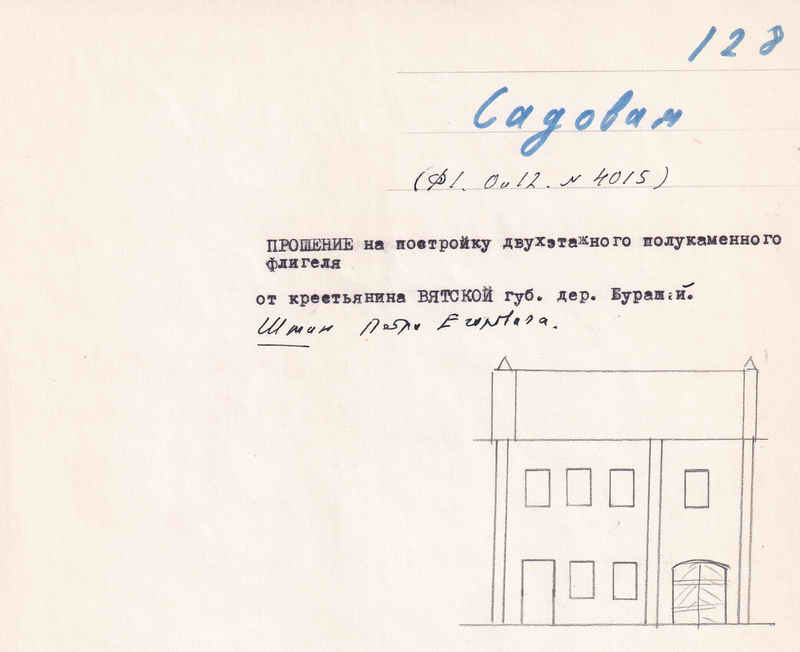 128
Садовая
(Ф1. Оп12. № 4015)
ПРОШЕНИЕ на постройку двухэтажного полукаменного
флигеля
от крестьянина ВЯТСКОЙ губ. дер.
Штин Петра Егоровича.